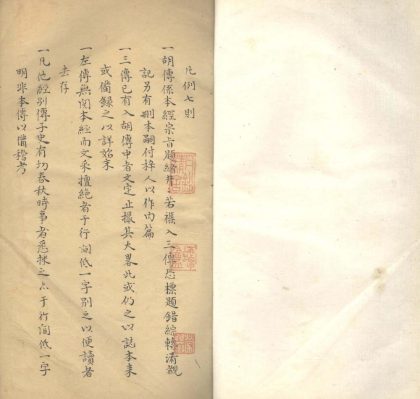 凡例七則
一胡傳係本經宗旨 若 入三傳恐標題錯綜轉淆觀
記另有刪本嗣付梓人以作內篇
一三傳已有入胡傳中者文定止撮其大畧此或仍之以誌本末
或備錄之以詳始末
一左傳無関本經而文采擅絕者于行間低一字別之以便讀者
去存
一凡他經別傳子史有切春秋時事者悉採之亦于行間低一字
明非本傳以備稽考